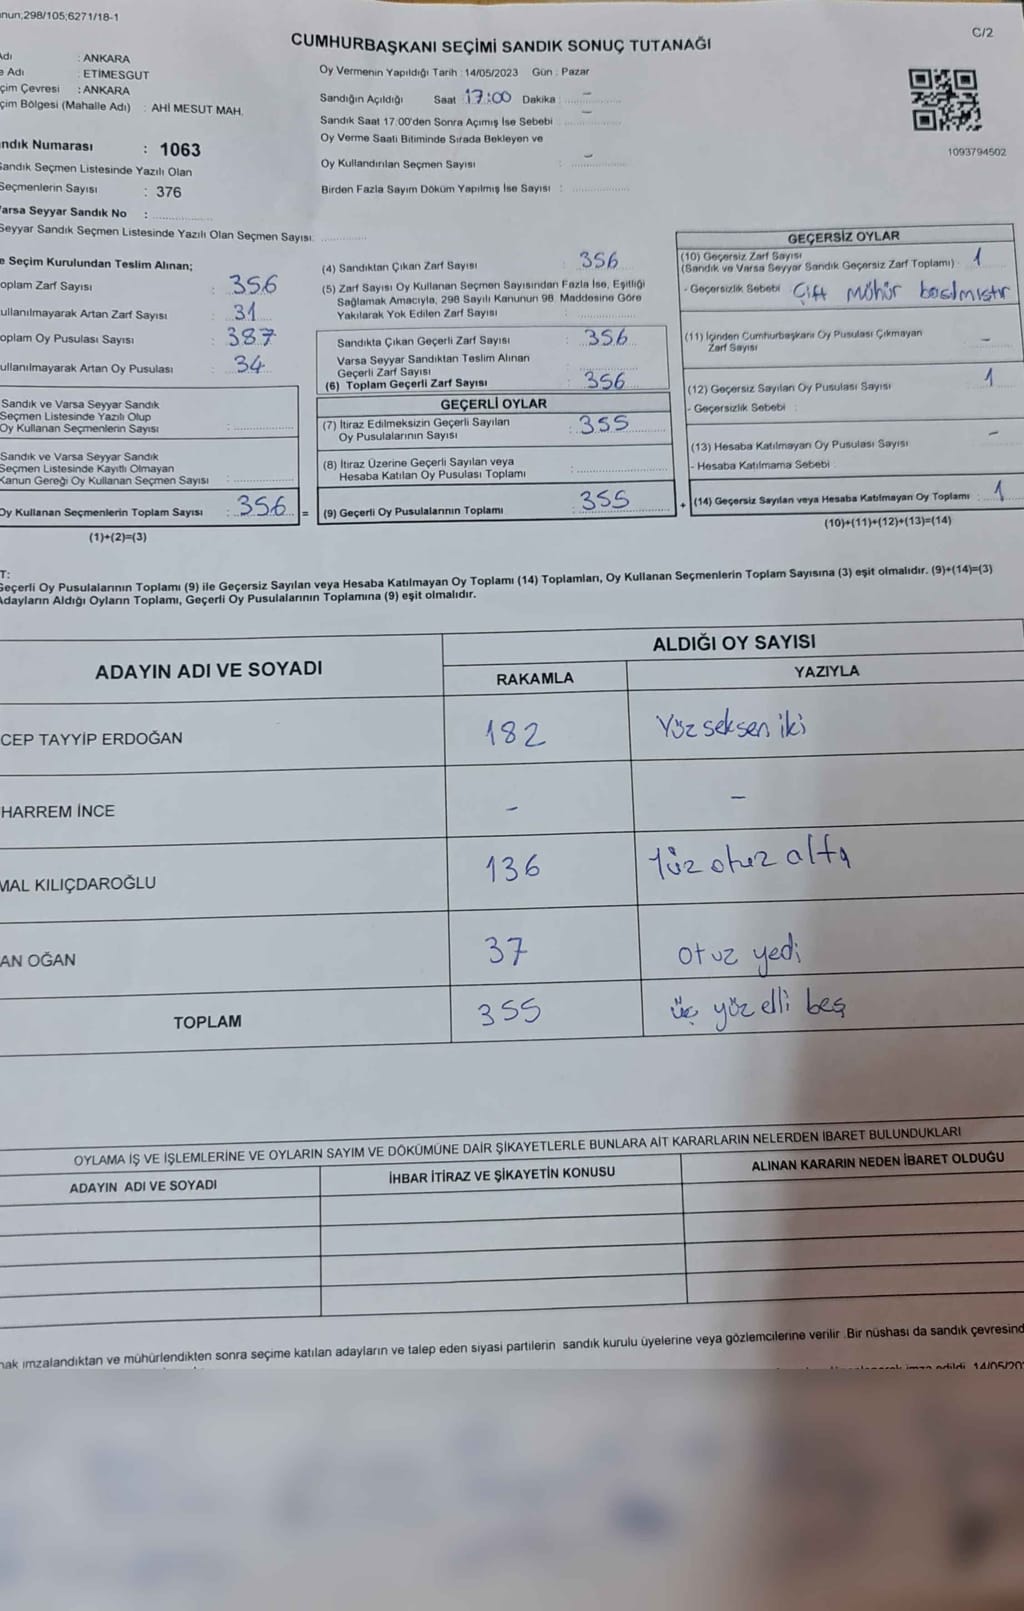 nun;298/105;6271/18-1
C/2
CUMHURBAŞKANI SEÇİMİ SANDIK SONUÇ TUTANAĞI
Adı : ANKARA
e Adı : ETİMESGUT
çim Çevresi : ANKARA
çim Bölgesi (Mahalle Adı) : AHİ MESUT MAH.
Oy Vermenin Yapıldığı Tarih : 14/05/2023 Gün : Pazar
Sandığın Açıldığı Saat 17:00 Dakika : –
Sandık Saat 17.00'den Sonra Açımış İse Sebebi : –
Oy Verme Saati Bitiminde Sırada Bekleyen ve
Oy Kullandırılan Seçmen Sayısı : –
Birden Fazla Sayım Döküm Yapılmış İse Sayısı :
1093794502
ndık Numarası : 1063
Sandık Seçmen Listesinde Yazılı Olan
Seçmenlerin Sayısı : 376
Varsa Seyyar Sandık No :
Seyyar Sandık Seçmen Listesinde Yazılı Olan Seçmen Sayısı:
e Seçim Kurulundan Teslim Alınan;
oplam Zarf Sayısı : 356
ullanılmayarak Artan Zarf Sayısı : 31
oplam Oy Pusulası Sayısı : 387
ullanılmayarak Artan Oy Pusulası : 34
Sandık ve Varsa Seyyar Sandık
Seçmen Listesinde Yazılı Olup
Oy Kullanan Seçmenlerin Sayısı :
Sandık ve Varsa Seyyar Sandık
Seçmen Listesinde Kayıtlı Olmayan
Kanun Gereği Oy Kullanan Seçmen Sayısı :
Oy Kullanan Seçmenlerin Toplam Sayısı : 356 =
(1)+(2)=(3)
(4) Sandıktan Çıkan Zarf Sayısı : 356
(5) Zarf Sayısı Oy Kullanan Seçmen Sayısından Fazla İse, Eşitliği
Sağlamak Amacıyla, 298 Sayılı Kanunun 98. Maddesine Göre
Yakılarak Yok Edilen Zarf Sayısı :
Sandıkta Çıkan Geçerli Zarf Sayısı : 356
Varsa Seyyar Sandıktan Teslim Alınan
Geçerli Zarf Sayısı
(6) Toplam Geçerli Zarf Sayısı : 356
GEÇERLİ OYLAR
(7) İtiraz Edilmeksizin Geçerli Sayılan
Oy Pusulalarının Sayısı : 355
(8) İtiraz Üzerine Geçerli Sayılan veya
Hesaba Katılan Oy Pusulası Toplamı :
(9) Geçerli Oy Pusulalarının Toplamı : 355 +
GEÇERSİZ OYLAR
(10) Geçersiz Zarf Sayısı
(Sandık ve Varsa Seyyar Sandık Geçersiz Zarf Toplamı) : 1
- Geçersizlik Sebebi : Çift mühür basılmıştır
(11) İçinden Cumhurbaşkanı Oy Pusulası Çıkmayan
Zarf Sayısı : –
(12) Geçersiz Sayılan Oy Pusulası Sayısı : 1
- Geçersizlik Sebebi :
(13) Hesaba Katılmayan Oy Pusulası Sayısı : –
- Hesaba Katılmama Sebebi :
(14) Geçersiz Sayılan veya Hesaba Katılmayan Oy Toplamı : 1
(10)+(11)+(12)+(13)=(14)
T:
Geçerli Oy Pusulalarının Toplamı (9) ile Geçersiz Sayılan veya Hesaba Katılmayan Oy Toplamı (14) Toplamları, Oy Kullanan Seçmenlerin Toplam Sayısına (3) eşit olmalıdır. (9)+(14)=(3)
Adayların Aldığı Oyların Toplamı, Geçerli Oy Pusulalarının Toplamına (9) eşit olmalıdır.
ADAYIN ADI VE SOYADI
ALDIĞI OY SAYISI
RAKAMLA YAZIYLA
CEP TAYYİP ERDOĞAN 182 Yüz seksen iki
HARREM İNCE – –
MAL KILIÇDAROĞLU 136 Yüz otuz altı
AN OĞAN 37 otuz yedi
TOPLAM 355 üç yüz elli beş
OYLAMA İŞ VE İŞLEMLERİNE VE OYLARIN SAYIM VE DÖKÜMÜNE DAİR ŞİKAYETLERLE BUNLARA AİT KARARLARIN NELERDEN İBARET BULUNDUKLARI
ADAYIN ADI VE SOYADI İHBAR İTİRAZ VE ŞİKAYETİN KONUSU ALINAN KARARIN NEDEN İBARET OLDUĞU
nak imzalandıktan ve mühürlendikten sonra seçime katılan adayların ve talep eden siyasi partilerin sandık kurulu üyelerine veya gözlemcilerine verilir .Bir nüshası da sandık çevresind
imza edildi. 14/05/20